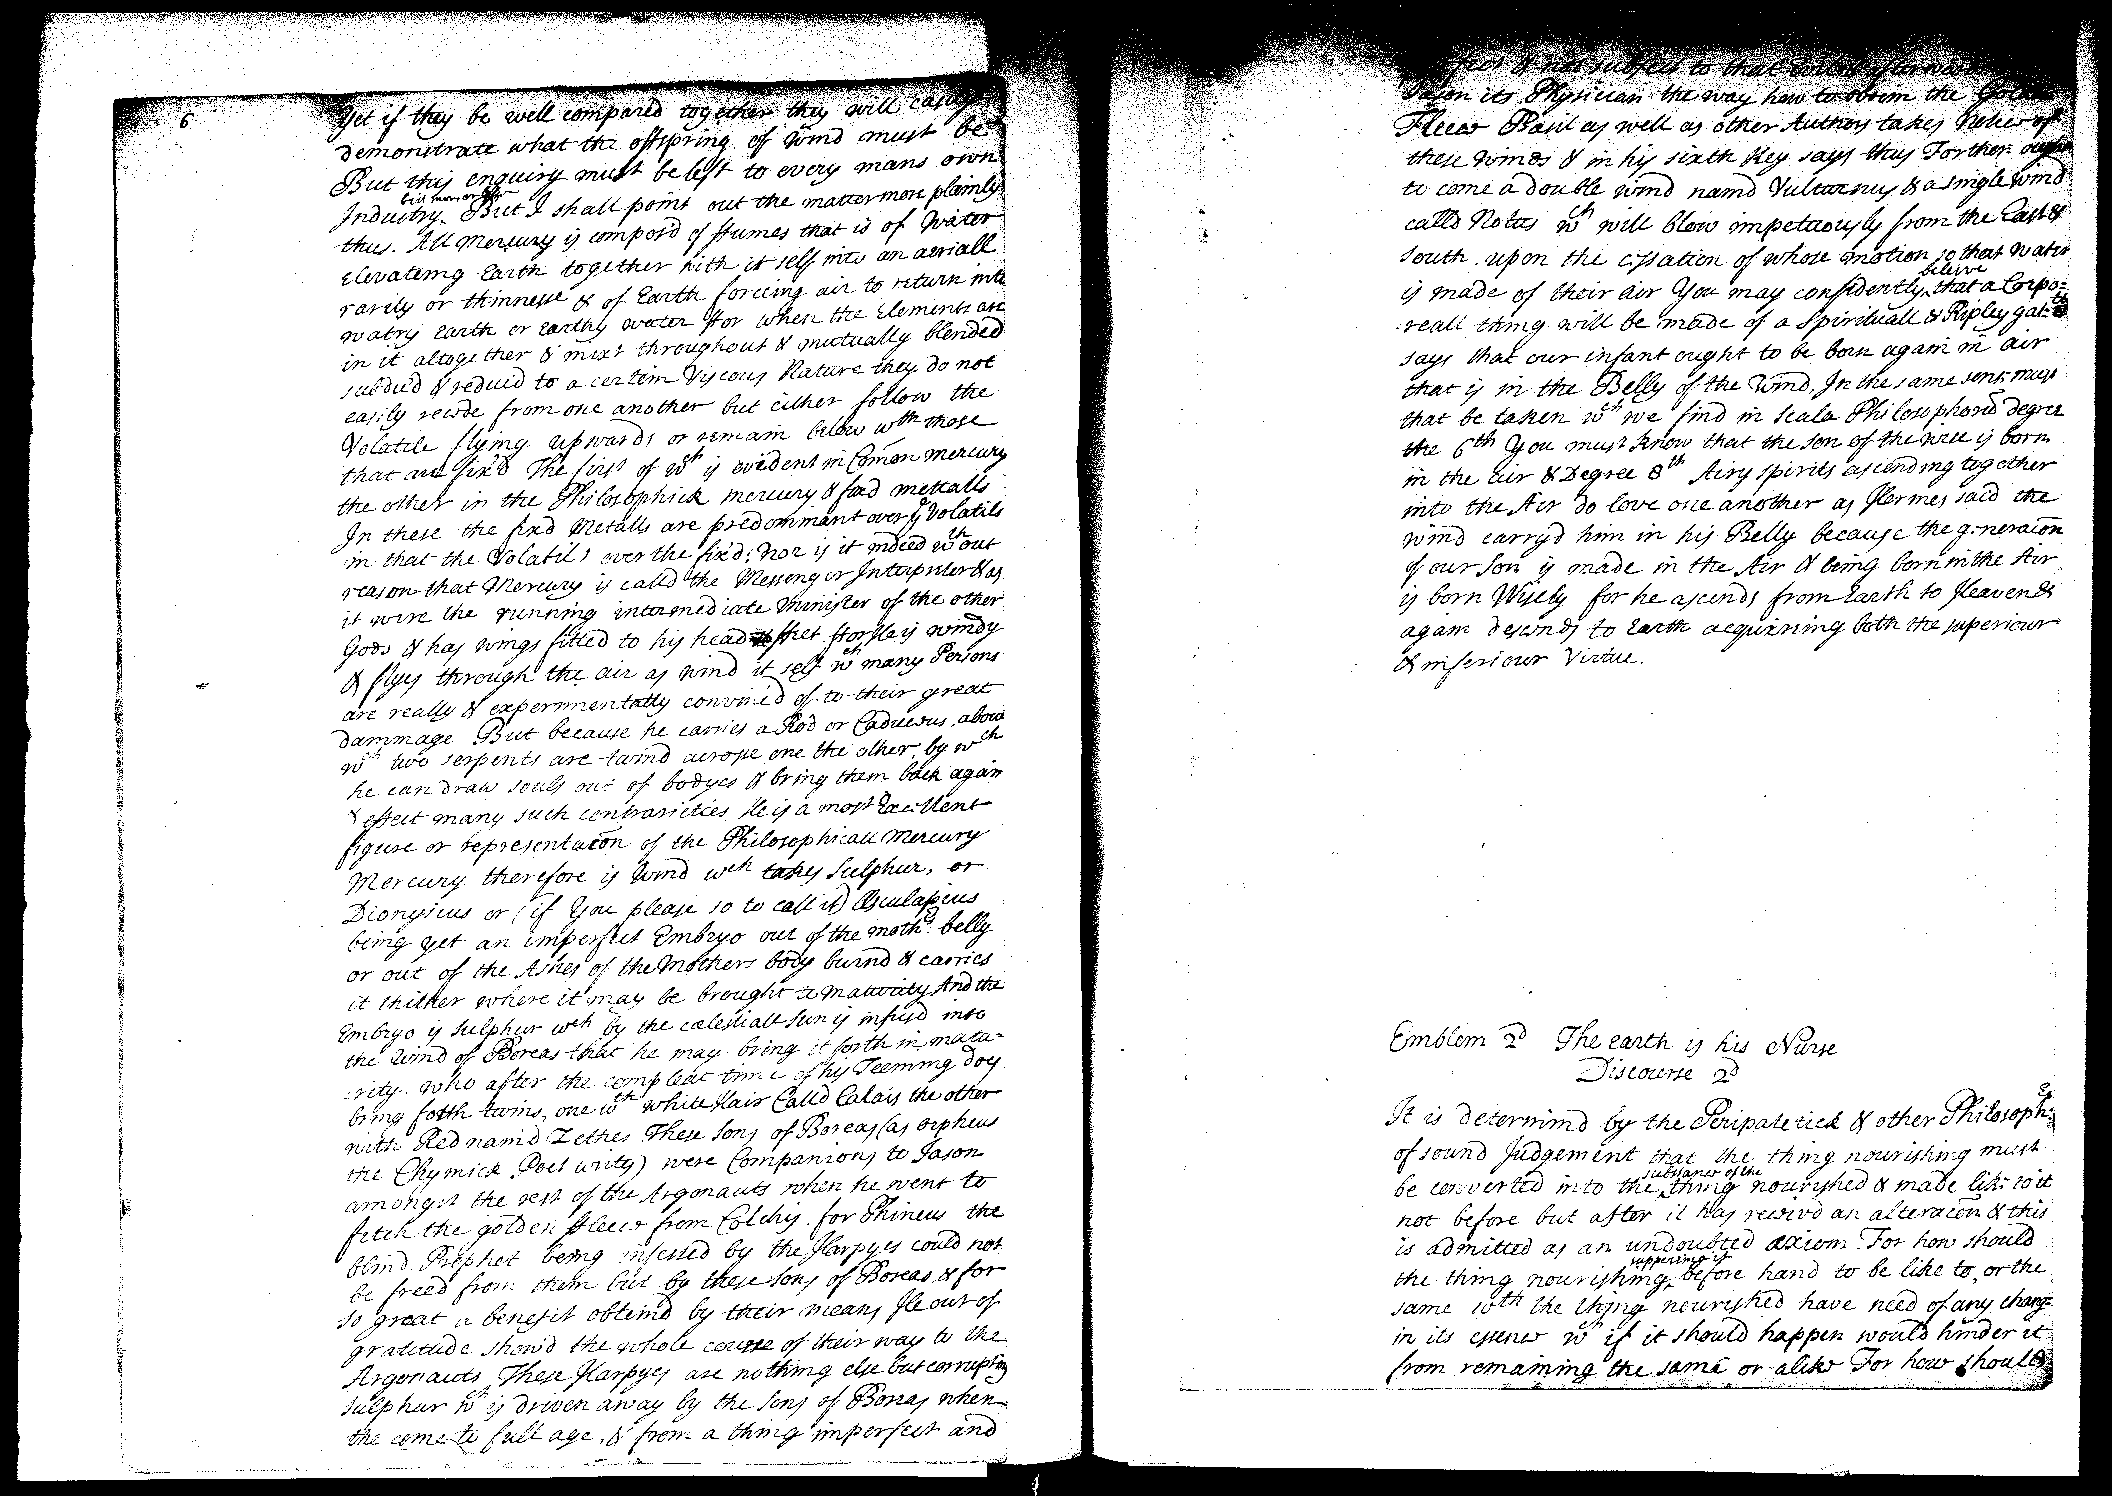 6
Yet if they be well compared together they will easily
demonstrate what the offspring of wind must be
But this enquiry must be left to every mans own
Industry. But I shall point out the matter more plainly
thus. All Mercury is composd of ffumes that is of Water
Elevateing Earth together with it self into an aeriall
rarity or thinnesse & of Earth forceing air to return into
watry Earth or Earthy water ffor when the Elements are
in it altogether & mixt throughout & mutually blended
subdued & reducd to a certein Viscous Nature they do not
easily recede from one another but either follow the
Volatile flying upwards or remain below wth those
that are fix'd The first of wch is evident in Comon mercury
the other in the Philosophick mercury & fixd mettalls
In these the fixd Metalls are predominant over ye Volatils
in that the Volatils over the fix'd; nor is it indeed wthout
reason that Mercury is calld the Messenger Interpreter & as
it were the running intermediate Minister of the other
Gods & has wings fitted to his head & ffeet ffor he is windy
& flyes through the air as wind it self wch many Persons
are really & experimentally convinc'd of to their great
dammage But because he carries a Rod or Caduceus, about
wch two serpents are twind acrosse one the other, by wch
he can draw souls out of bodyes & bring them back again
& effect many such contrarieties He is a most Excellent
figure or representacon of the Philosophicall Mercury
Mercury therefore is Wind wch takes Sulphur, or
Dionysius or (if You please so to call it) Æsculapius
being yet an imperfect Embryo out of the mothrs belly
or out of the Ashes of the Mothers body burnd & carries
it thither where it may be brought to maturity And the
Embryo is Sulphur wch by the cœlestiall Sun is infusd into
the Wind of Boreas that he may bring it forth in matu-
rity. who after the compleat time of his Teeming doy
bring foth twins, one wth white Hair Calld Calais the other
with Red nam'd Zethes These Sons of Boreas (as Orpheus
the Chymick Poet writes) were Companions to Jason
amongst the rest of the Argonauts when he went to
fetch the golden ffleece from Colchys. for Phineus the
blind Prophet being infested by the Harpyes could not
be freed from them but by these Sons of Boreas & for
so great a benefit obteind by their means He out of
gratitude show'd the whole course of their way to the
Argonauts These Harpyes are nothing else but corrupting
sulphur wch is driven away by the Sons of Boreas when
the come to full age, & from a thing imperfect and
& not subject to that
Jason its Physician the way how to obtein the Golden
Fleece Basil as well as other Authors takes notice of
these winds & in his sixth Key says thus For ther ought
to come a double wind namd Vulturnus & a single wind
calld Notus wch will blow impetuously from the East &
south. upon the cessation of whose motion so that Water
is made of their Air You may confidently beleive that a Corpo-
reall thing will be made of a Spirituall & Ripley
says that our infant ought to be born again in air
that is in the Belly of the Wind. In the same sens must
that be taken wch we find in Scala Philosophorū degree
the 6th You must Know that the Son of the wise is born
in the Air & Degree 8th Airy spirits ascending together
into the Air do love one another as Hermes said the
wind carryd him in his Belly because the generacon
of our Son is made in the Air & being born in the Air
is born Wisely for he ascends from Earth to Heaven &
again descends to Earth acquirring both the superiour
& inferiour Virtue.
Emblem 2d The earth is his Nurse
Discourse 2d
It is determind by the Peripatetick & other Philosophrs
of sound Judgement that the thing nourishing must
be converted into the substance of the thing nourished & made like to it
not before but after it has receivd an alteracon & this
is admitted as an undoubted axiom For how should
the thing nourishing, supposeing it before hand to be like to, or the
same wth the thing nourished have need of any change
in its essence wch if it should happen would hinder it
from remaining the same or alike For how should